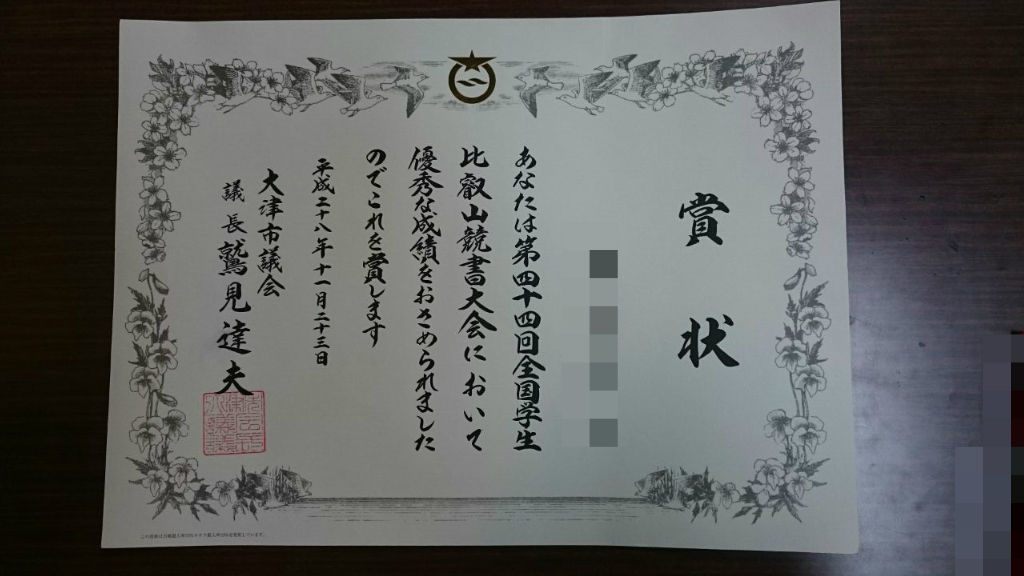 賞状
あなたは第四十四回全国学生
比叡山競書大会において
優秀な成績をおさめられました
のでこれを賞します
平成二十八年十一月二十三日
大津市議会
議長鷲見達夫